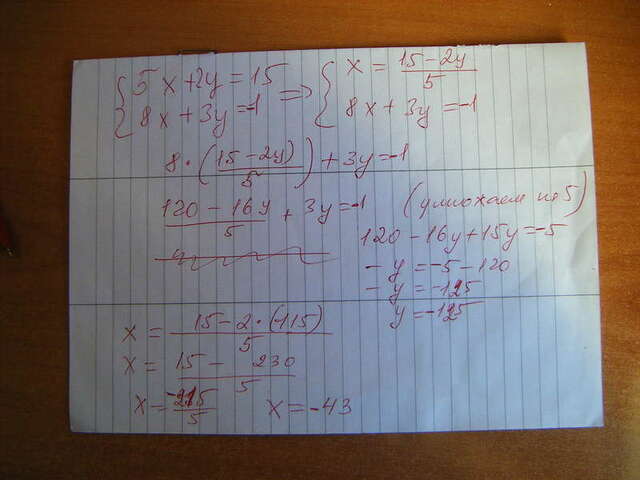 { 5x + 2y = 15 => { x = (15 - 2y)/5
{ 8x + 3y = -1 { 8x + 3y = -1
8 · ((15 - 2y)/5) + 3y = -1
(120 - 16y)/5 + 3y = -1 (умножаем на 5)
120 - 16y + 15y = -5
- y = -5 - 120
- y = -125
y = -125
x = (15 - 2 · (-115))/5
x = (15 - 230)/5
x = -215/5 x = -43